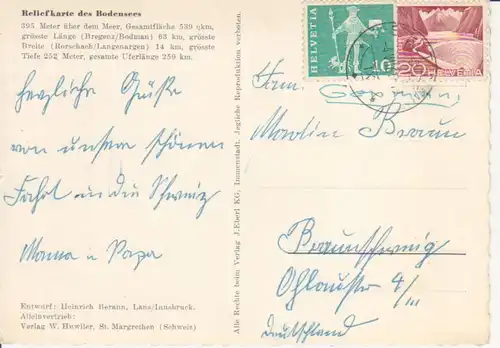 Reliefkarte des Bodensees
395 Meter über dem Meer, Gesamtfläche 539 qkm,
grösste Länge (Bregenz/Bodman) 63 km, grösste
Breite (Rorschach/Langenargen) 14 km, grösste
Tiefe 252 Meter, gesamte Uferlänge 259 km.
herzliche Grüße
von unserem schönen
Fahrt in die Schweiz
Mama u Papa
Entwurf: Heinrich Berann, Lans/Innsbruck.
Alleinvertrieb:
Verlag W. Huwiler, St. Margrethen (Schweiz)
Alle Rechte beim Verlag J. Eberl KG, Immenstadt. Jegliche Reproduktion verboten.
HELVETIA
10
20
HELVETIA
Fam.
Martin Braun
Braunschweig
4/III
Deutschland